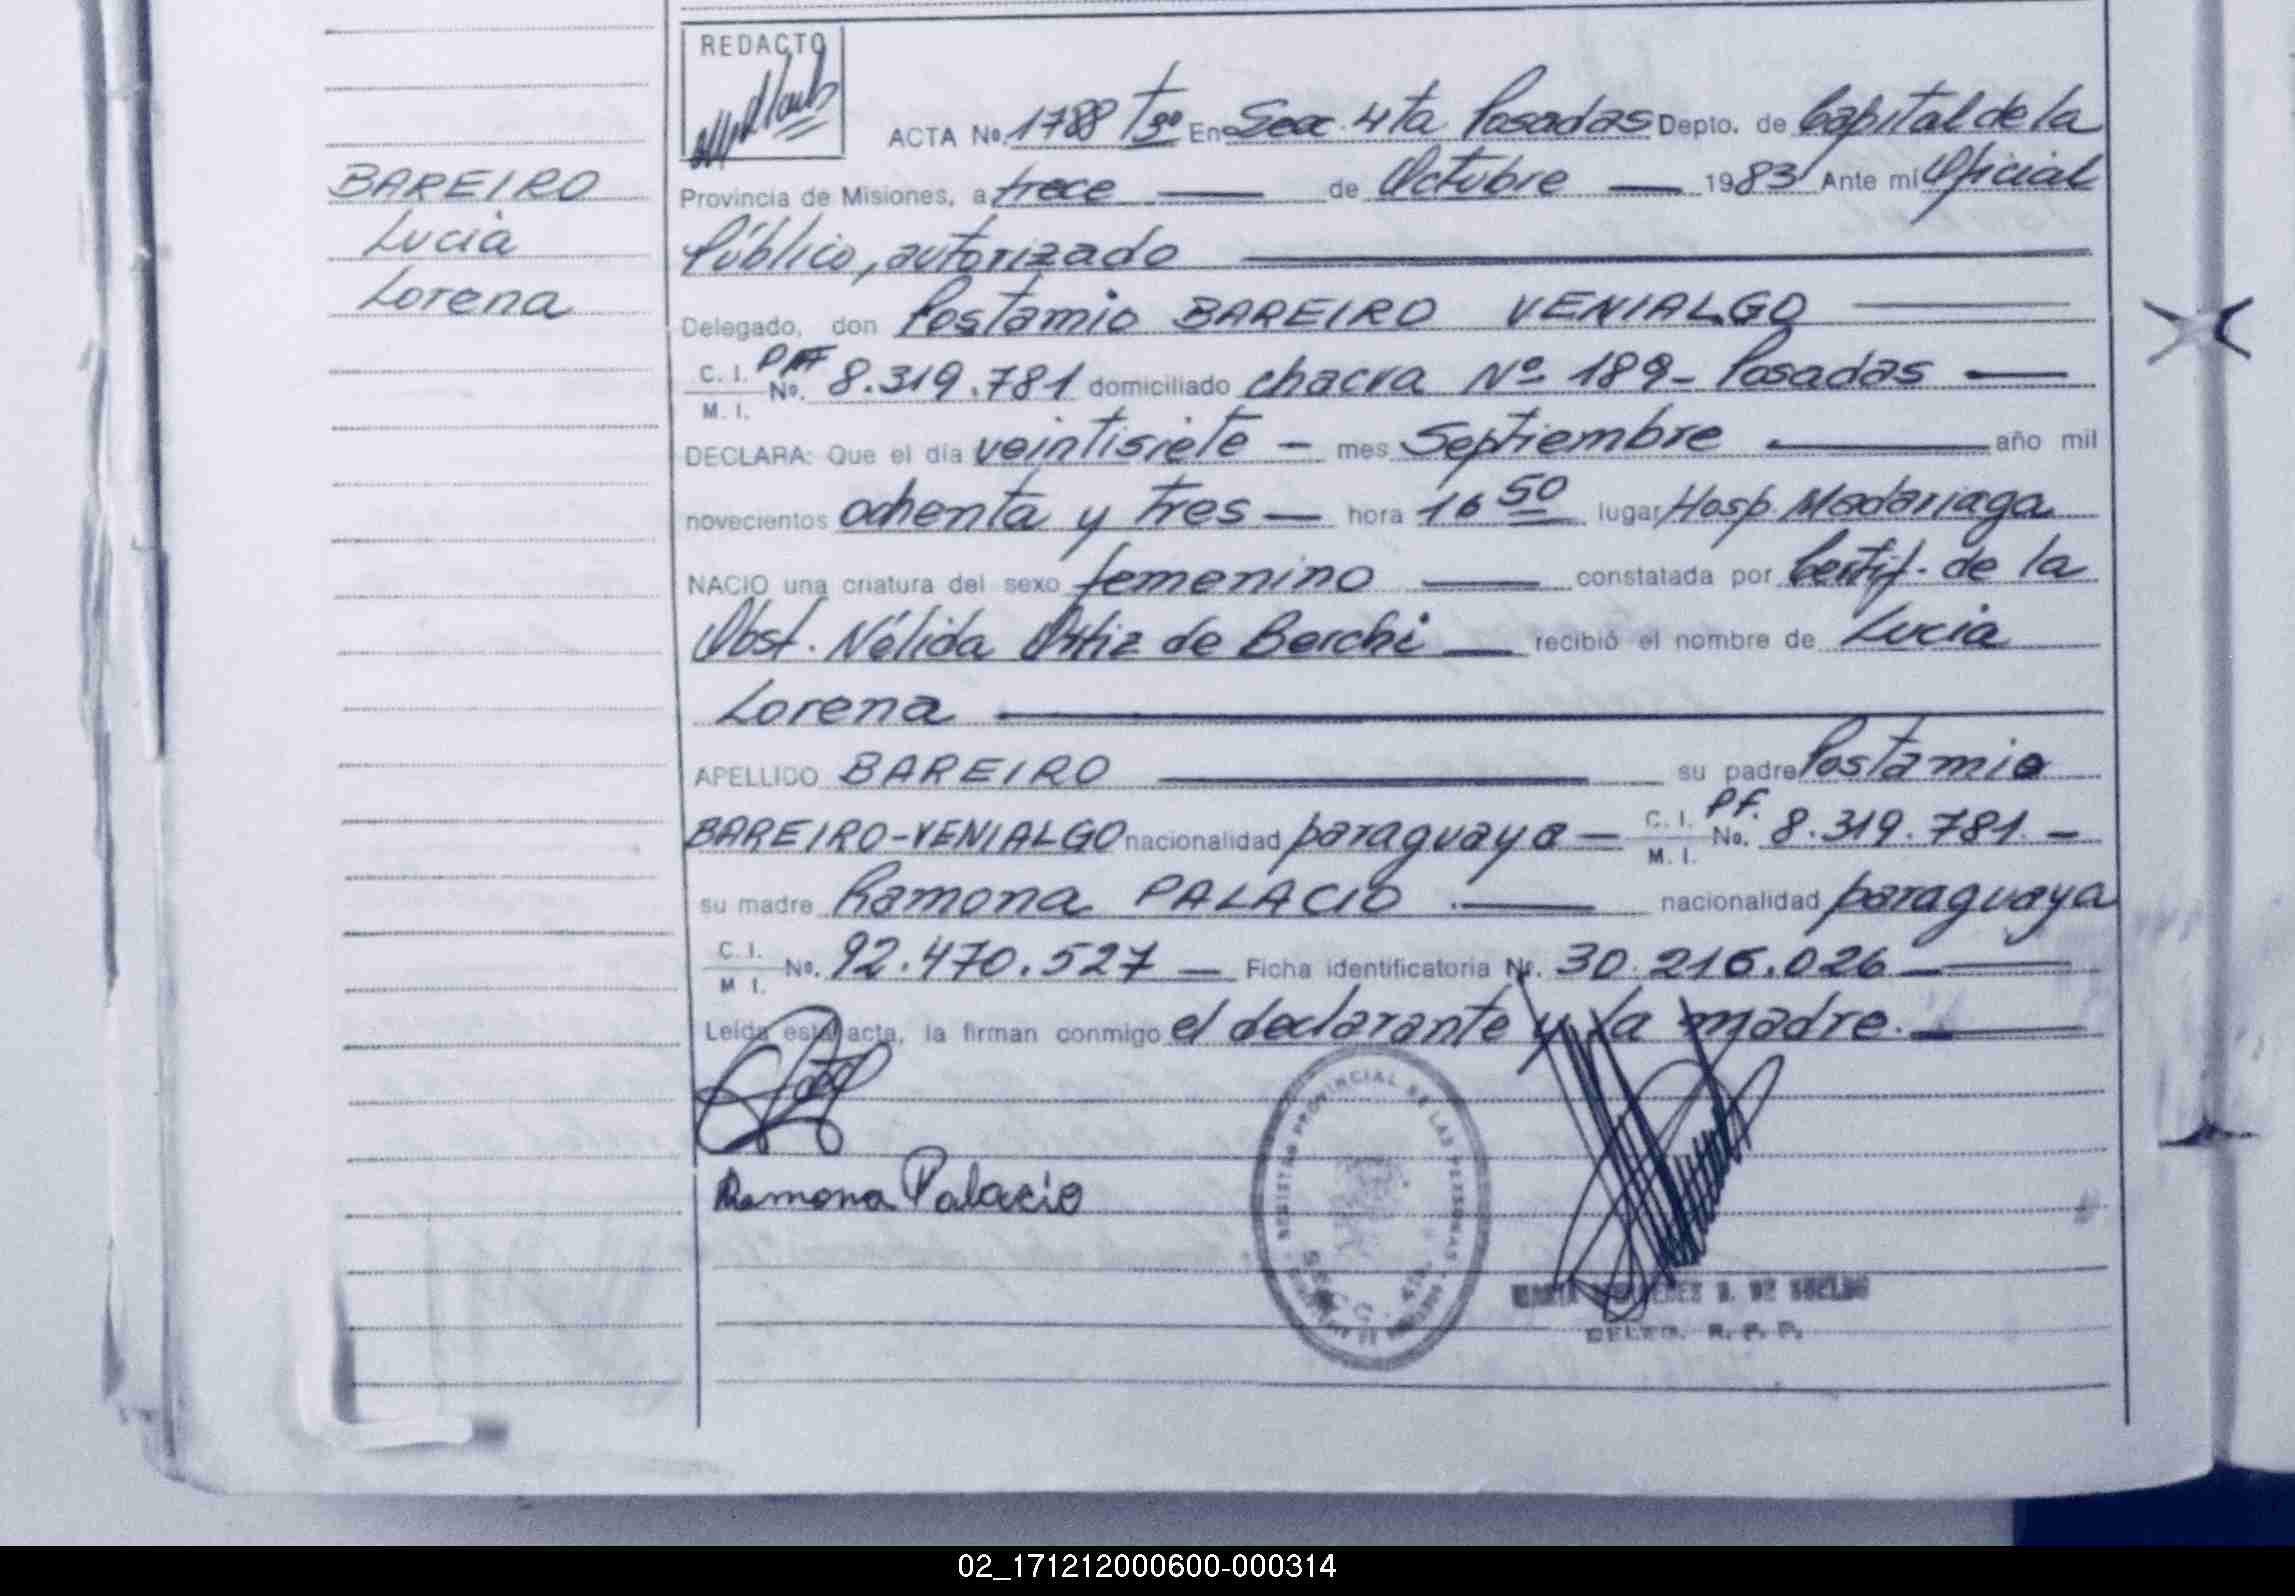 REDACTO
ACTA No. 1788 Tº 9º En Secc. 4ta Posadas Depto. de Capital de la
BAREIRO
Provincia de Misiones, a trece de Octubre 1983 Ante mí Oficial
Lucia
Público, autorizado
Lorena
Delegado, don Postamio BAREIRO VENIALGO
C. I. M. I. No. PFF 8.319.781 domiciliado chacra Nº 189- Posadas
DECLARA: Que el día veintisiete - mes Septiembre año mil
novecientos ochenta y tres - hora 16 50 lugar Hosp. Madariaga
NACIO una criatura del sexo femenino constatada por Certif. de la
Obst. Nélida Ortiz de Berchi recibió el nombre de Lucia
Lorena
APELLIDO BAREIRO su padre Postamio
BAREIRO-VENIALGO nacionalidad paraguaya - C. I. M. I. No. PF. 8.319.781. -
su madre Ramona PALACIO nacionalidad paraguaya
C. I. M I. No. 92.470.527 - Ficha identificatoria Nr. 30.216.026 -
Leída esta acta, la firman conmigo el declarante y la madre.
Ramona Palacio
REGISTRO PROVINCIAL DE LAS PERSONAS
DE SUELDO
DELEG. R. P. P.
02_171212000600-000314